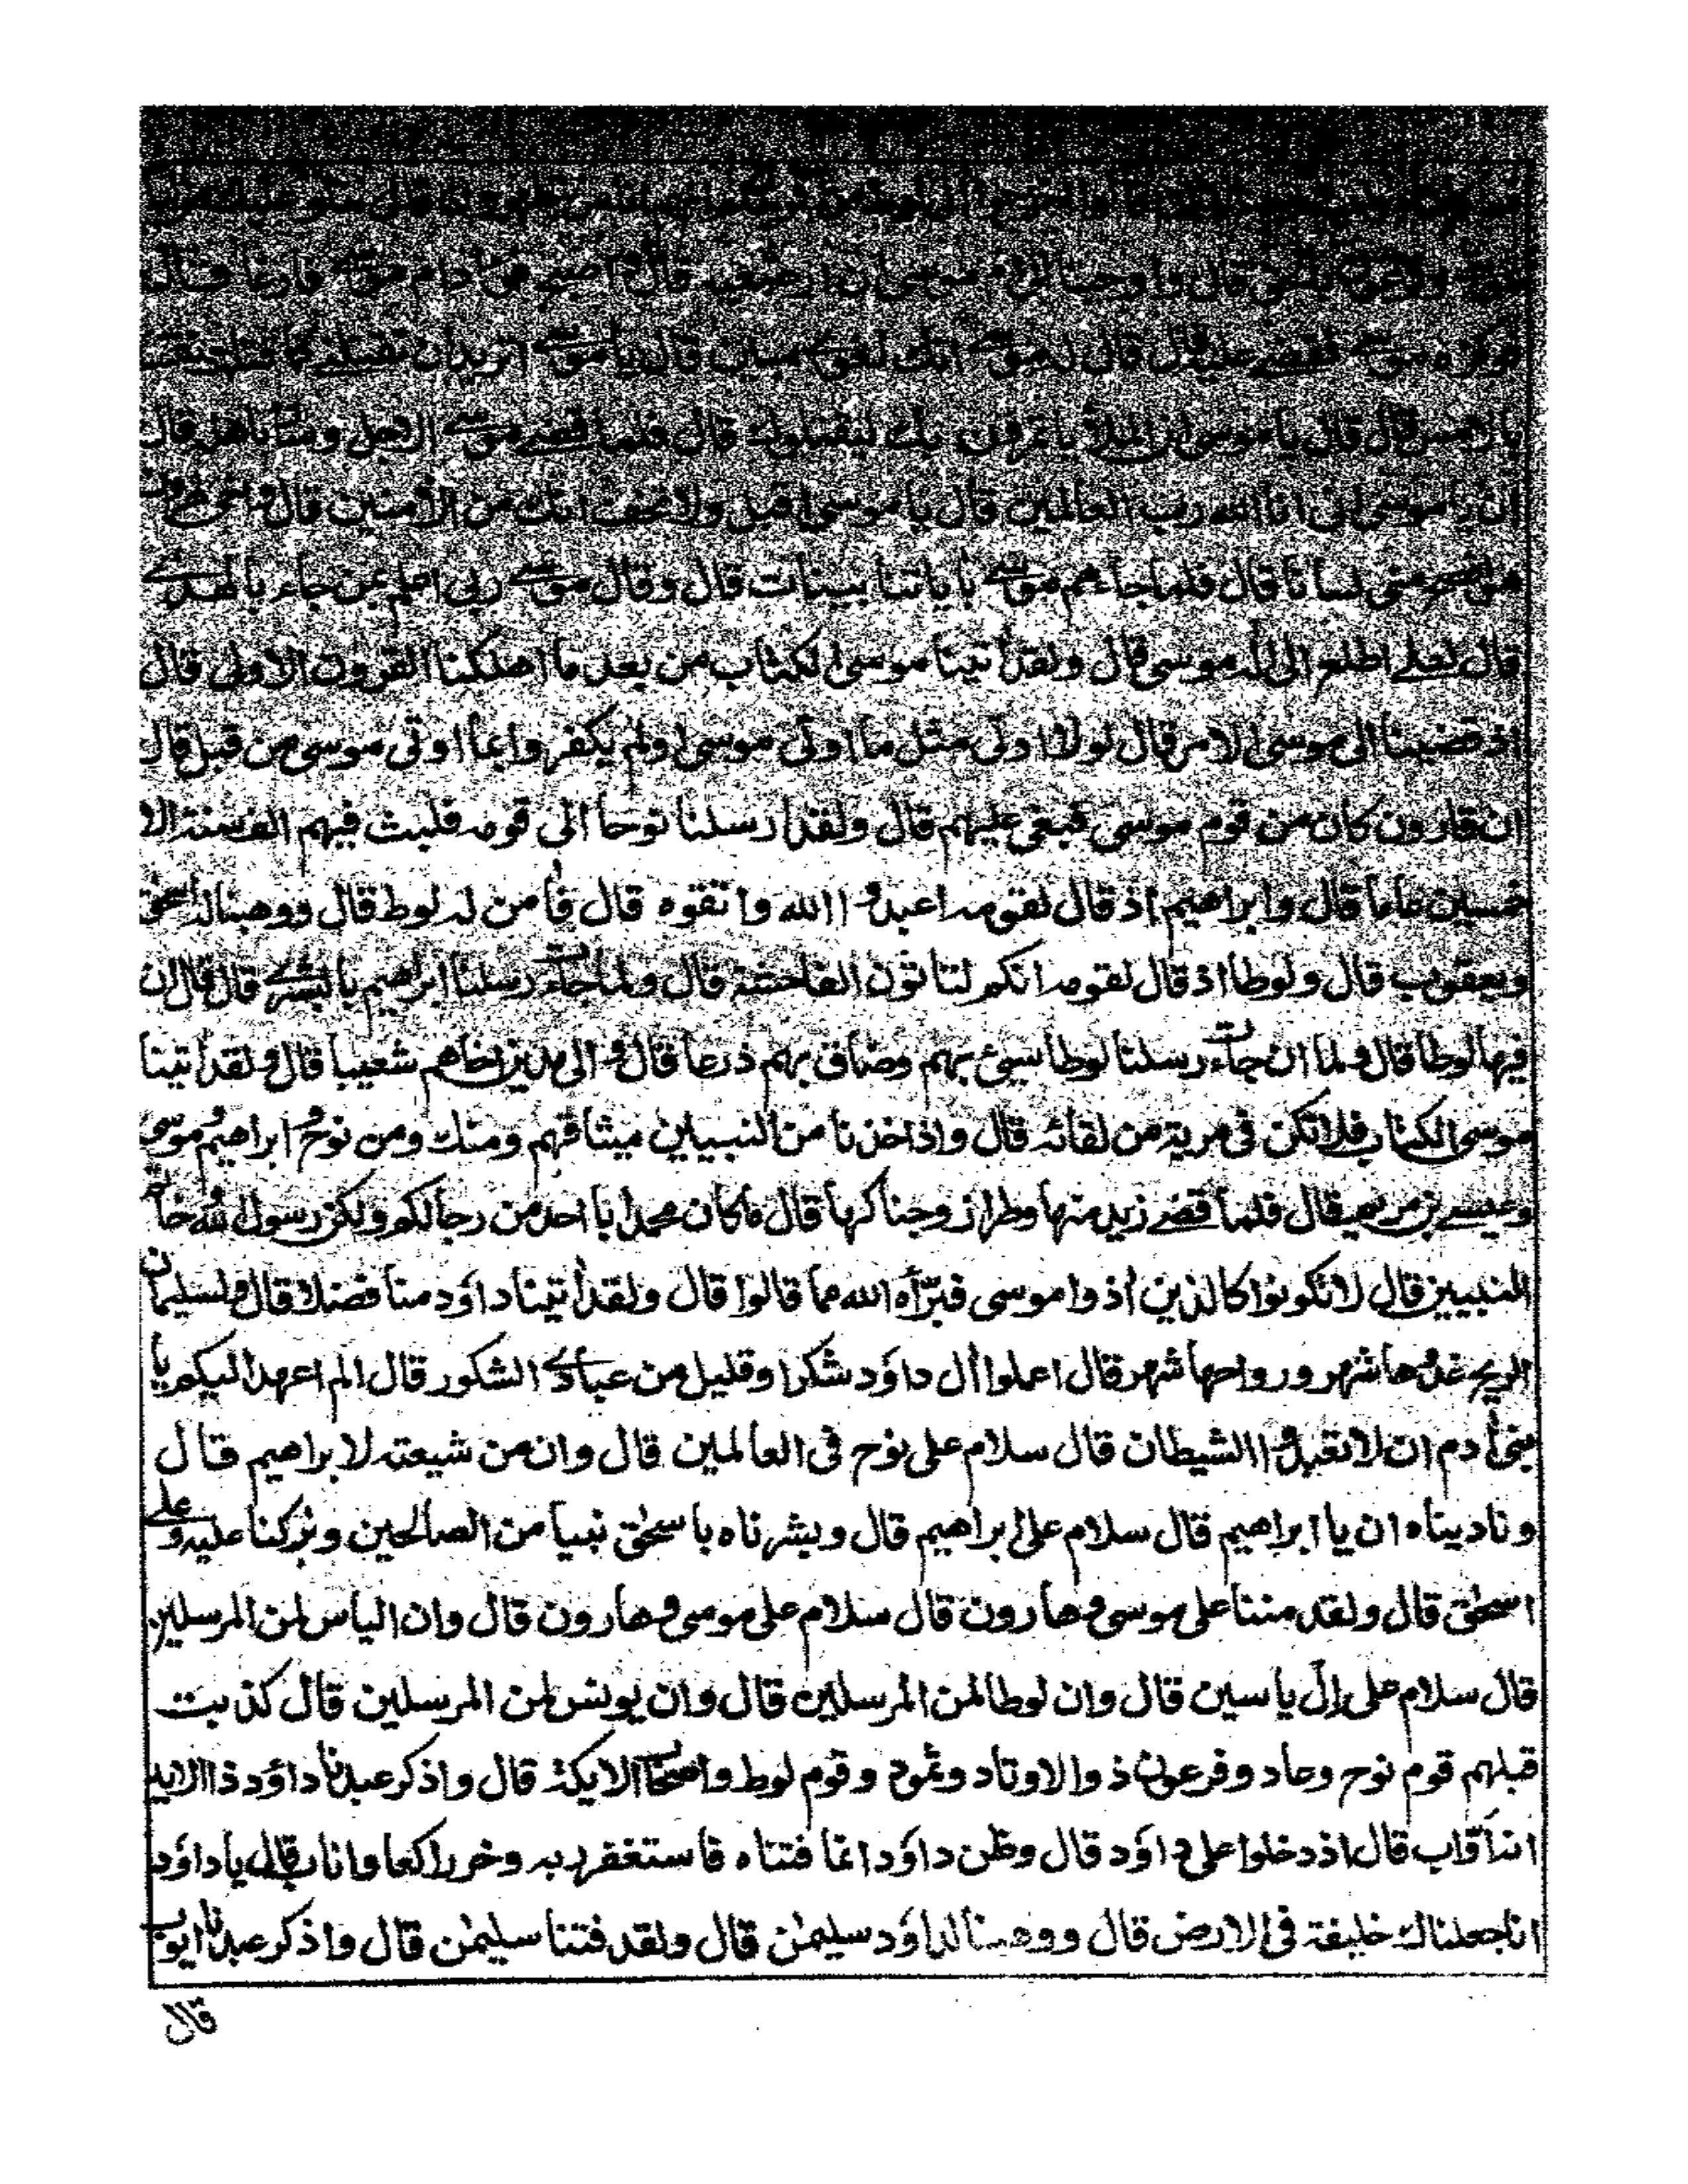 قال وأوحينا إلى أم موسى أن أرضعيه قال وأصبح فؤاد أم موسى فارغا قال
فوكزه موسى فقضى عليه قال قال له موسى انك لغوي مبين قال يا موسى اتريد ان تقتلني كما قتلت نفسا
بالامس قال قال يا موسى ان الملأ يأتمرون بك ليقتلوك قال فلما قضى موسى الاجل وسار باهله قال
ان يا موسى اني انا الله رب العالمين قال يا موسى اقبل ولا تخف انك من الأمنين قال واخي هارون
هو افصح مني لسانا قال فلما جاءهم موسى بأياتنا بينات قال وقال موسى ربي اعلم بمن جاء بالهدى
قال لعلي اطلع الى اله موسى قال ولقد أتينا موسى الكتاب من بعد ما اهلكنا القرون الاولى قال
اذ قضينا الى موسى الامر قال لولا اوتى مثل ما اوتى موسى اولم يكفروا بما اوتى موسى من قبل قال
ان قارون كان من قوم موسى فبغى عليهم قال ولقد ارسلنا نوحا الى قومه فلبث فيهم الف سنة الا
خمسين عاما قال وابراهيم اذ قال لقومه اعبدوا الله واتقوه قال فأمن له لوط قال ووهبنا له اسحق
ويعقوب قال ولوطا اذ قال لقومه انكم لتاتون الفاحشة قال ولما جاءت رسلنا ابراهيم بالبشرى قال قال ان
فيها لوطا قال ولما ان جاءت رسلنا لوطا سيئ بهم وضاق بهم ذرعا قال والى مدين اخاهم شعيبا قال ولقد أتينا
موسى الكتاب فلا تكن في مرية من لقائه قال واذ اخذنا من النبيين ميثاقهم ومنك ومن نوح وابراهيم وموسى
وعيسى بن مريم قال فلما قضى زيد منها وطرا زوجناكها قال ما كان محمد ابا احد من رجالكم ولكن رسول الله وخاتم
النبيين قال لا تكونوا كالذين أذوا موسى فبرأه الله مما قالوا قال ولقد أتينا داؤد منا فضلا قال ولسليمان
الريح غدوها شهر ورواحها شهر قال اعملوا أل داؤد شكرا وقليل من عبادى الشكور قال الم اعهد اليكم يا
بنى أدم ان لا تعبدوا الشيطان قال سلام على نوح فى العالمين قال وان من شيعته لابراهيم قال
وناديناه ان يا ابراهيم قال سلام على ابراهيم قال وبشرناه باسحق نبيا من الصالحين وبركنا عليه وعلى
اسحق قال ولقد مننا على موسى وهارون قال سلام على موسى وهارون قال وان الياس لمن المرسلين
قال سلام على إل ياسين قال وان لوطا لمن المرسلين قال وان يونس لمن المرسلين قال كذبت
قبلهم قوم نوح وعاد وفرعون ذو الاوتاد وثمود وقوم لوط واصحاب الايكة قال واذكر عبدنا داؤد ذا الايد
انه أواب قال اذ دخلوا على داؤد قال وظن داؤد انما فتناه فاستغفر ربه وخر راكعا واناب قال يا داؤد
انا جعلناك خليفة فى الارض قال ووهبنا لداؤد سليمن قال ولقد فتنا سليمن قال واذكر عبدنا ايوب
قال